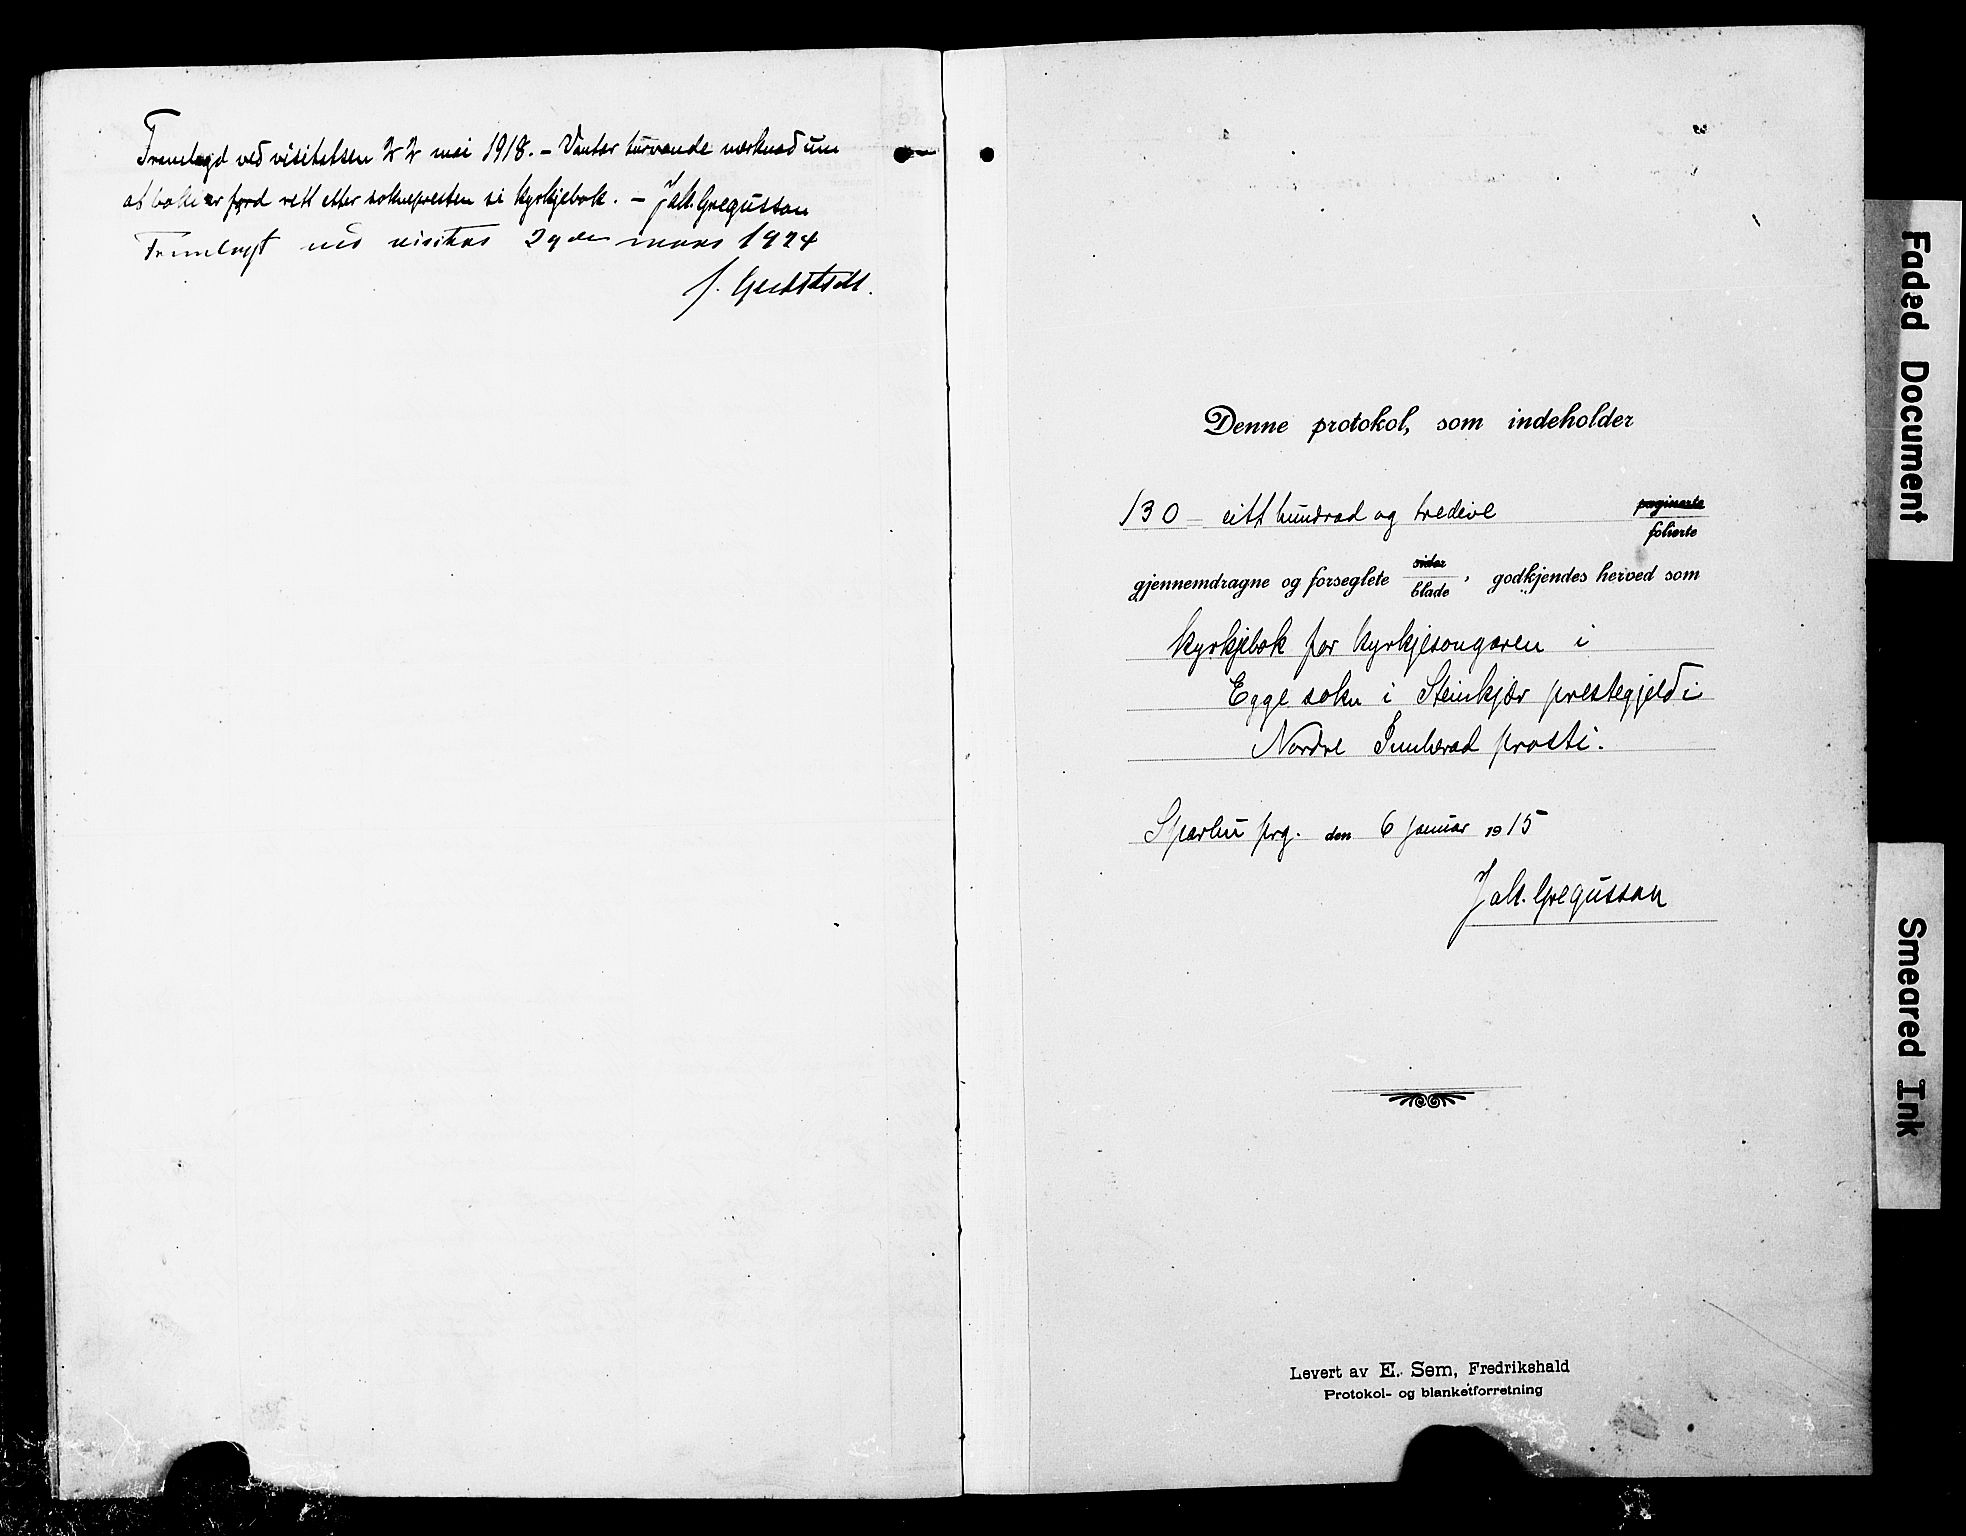 Framlagd ved visitatsen 22 mai 1918. – Vantar turvande merknad um
at boki er førd rett etter soknepresten si kyrkjebok. – J Alt. Gregusson
Fremlagt ved visitas 29de mars 1924
J.
Denne protokol, som indeholder
130 – eitt hundrad og tredive paginerte
folierte
gjennemdragne og forseglete sider
blade, godkjendes herved som
kyrkjebok for kyrkjesongaren i
Egge sokn i Steinkjær prestegjeld i
Nordre Innherad prosti.
Sparbu prg. den 6 januar 1915
J Alt. Gregusson
Levert av E. Sem, Fredrikshald
Protokol- og blanketforretning
Faded Document
Smeared Ink